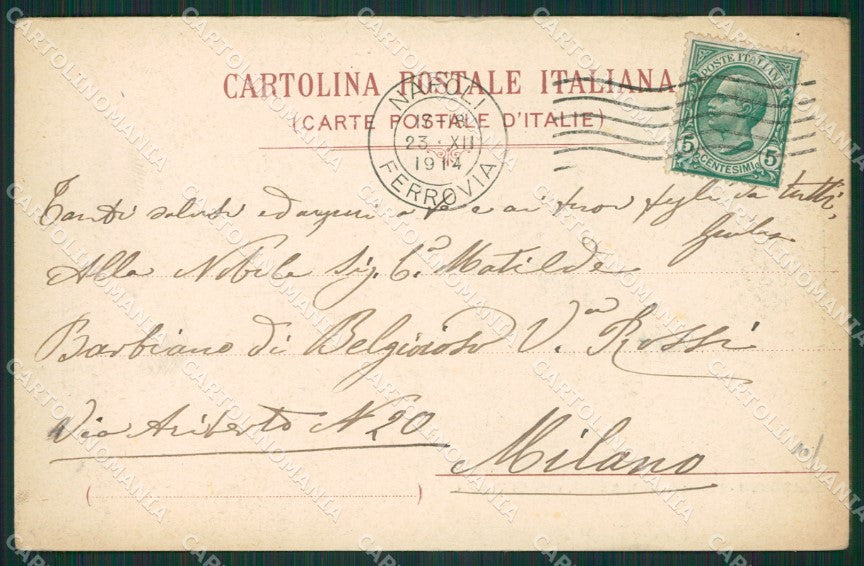 CARTOLINA POSTALE ITALIANA
(CARTE POSTALE D'ITALIE)
NAPOLI
23 · XII
1914
FERROVIA
POSTE ITALIANE
5 CENTESIMI 5
Tanti saluti ed auguri a te e ai tuoi figli da tutti,
Alla Nobile Sig. C.a Matilde
Barbiano di Belgioioso V.a Rossi
Via Ariberto N 20
Milano
CARTOLINOMANIA